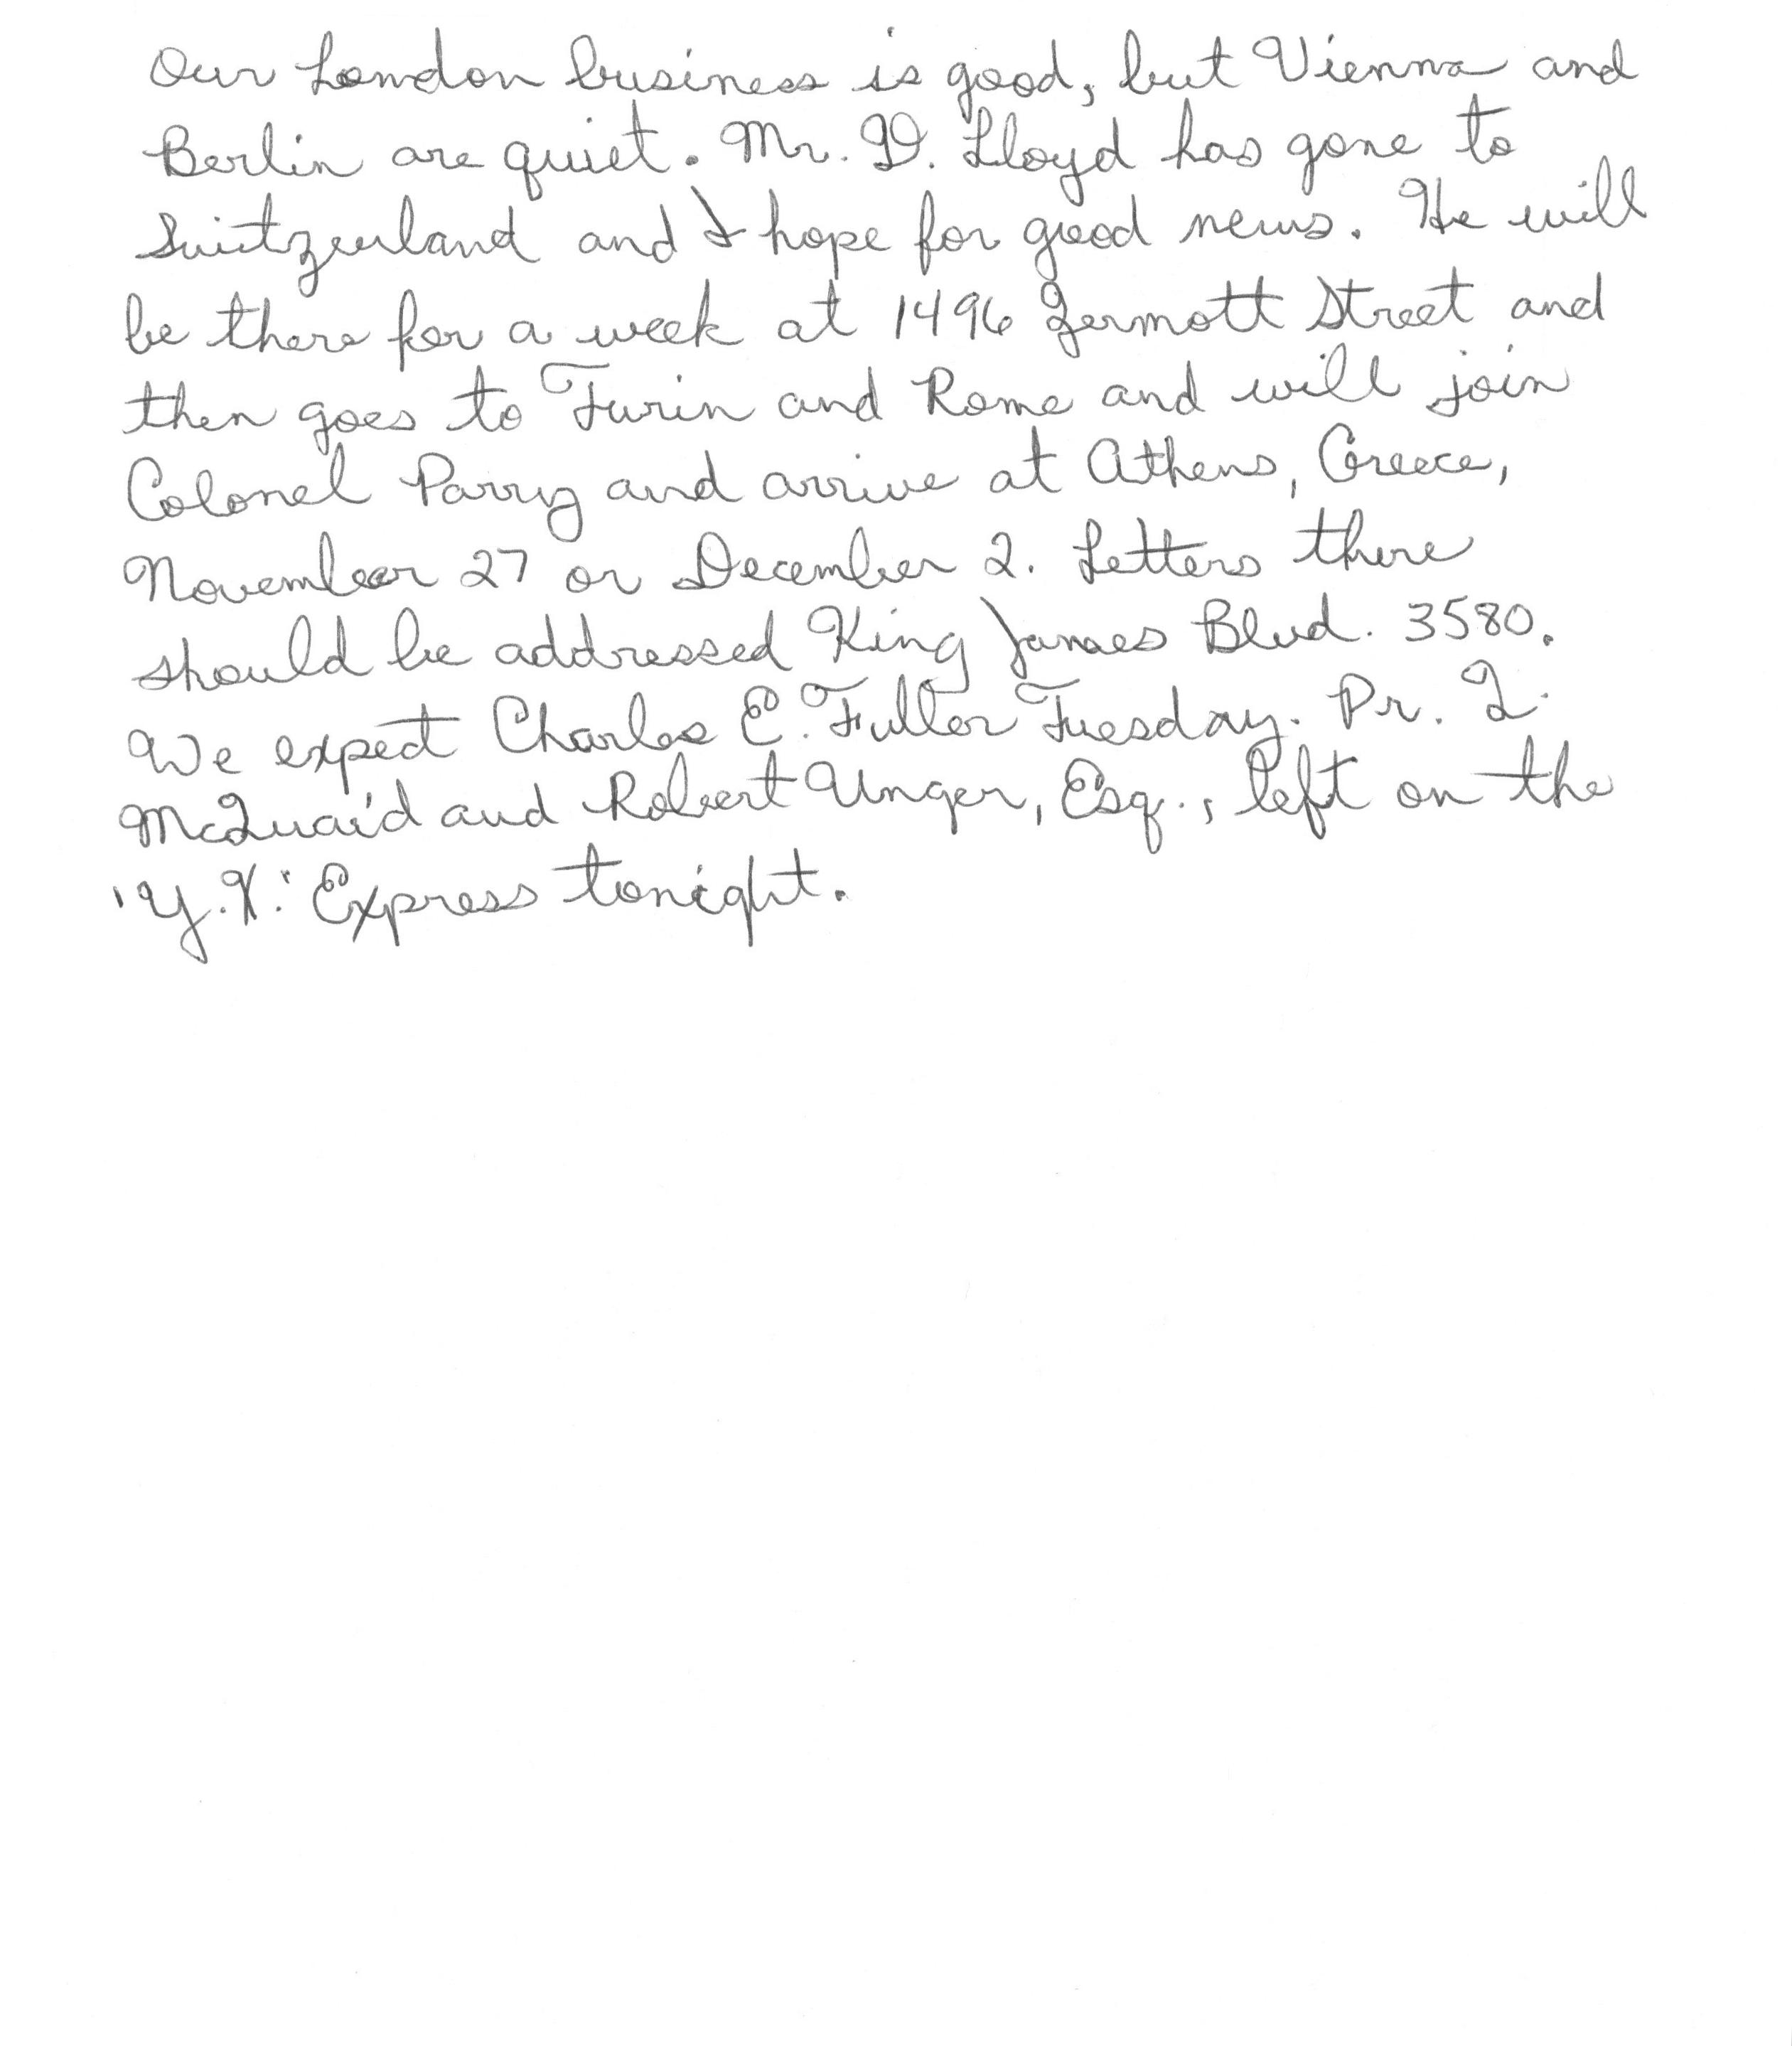 Our London business is good, but Vienna and
Berlin are quiet. Mr. D. Lloyd has gone to
Switzerland and I hope for good news. He will
be there for a week at 1496 Zermott Street and
then goes to Turin and Rome and will join
Colonel Parry and arrive at Athens, Greece,
November 27 or December 2. Letters there
should be addressed King James Blvd. 3580.
We expect Charles E. Fuller Tuesday. Pr. Q.
McQuaid and Robert Unger, Esq., left on the
'Y.X.' Express tonight.